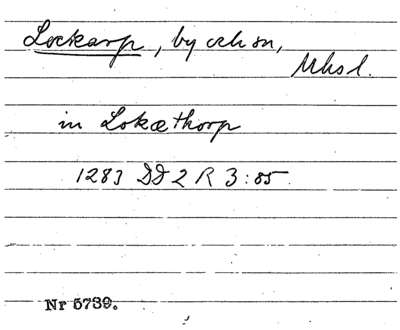 Lockarp, by och sn,
Mhsl.
in Lokæthorp
1283 DD 2 R 3:85
Nr 5739.